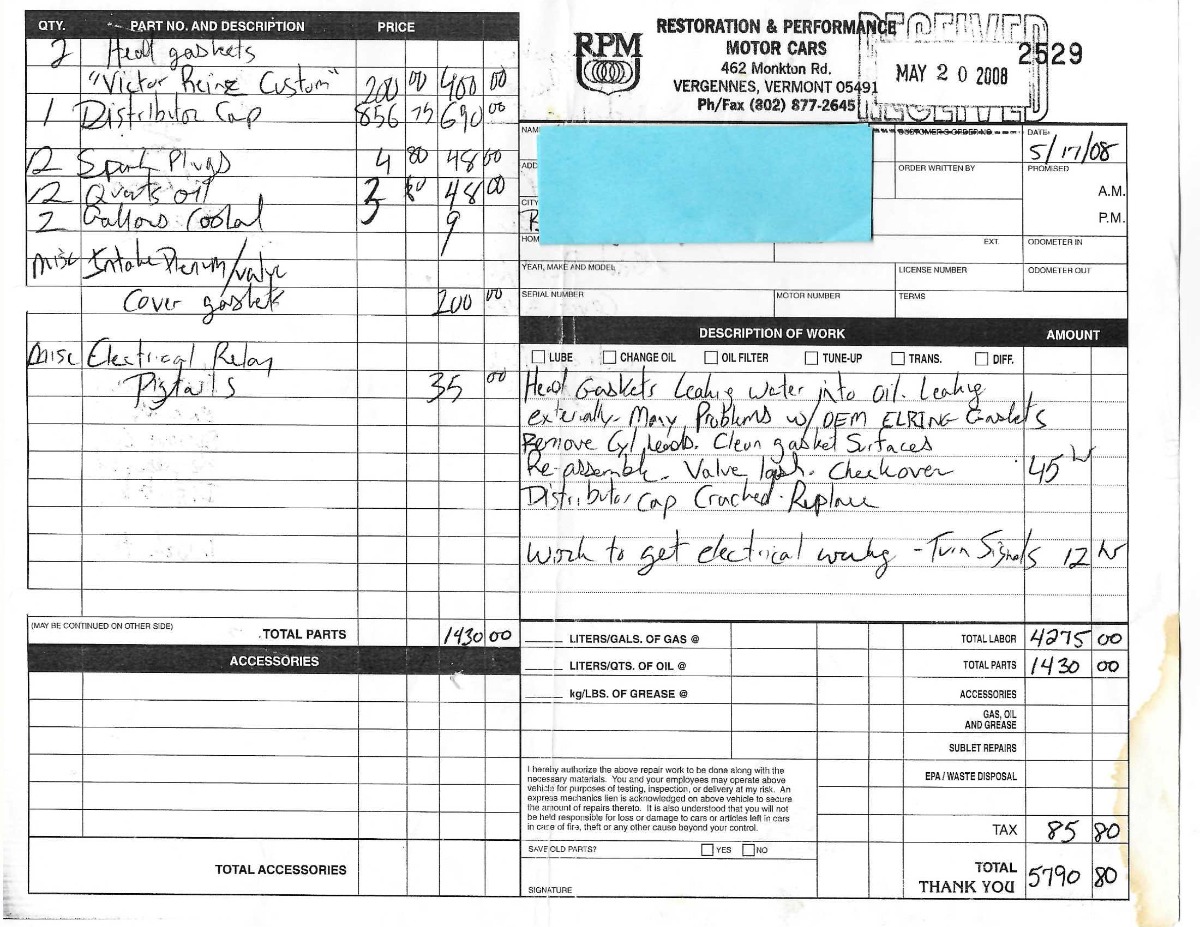 QTY. PART NO. AND DESCRIPTION PRICE
2 Head gaskets
"Victor Reinz Custom" 200 00 400 00
1 Distributor Cap 856 75 690 00
12 Spark Plugs 4 80 48 00
12 Quarts oil 48 00
2 Gallons Coolant 9
misc Intake Plenum/valve
Cover gaskets 200 00
Misc Electrical Relay
Pigtails 35 00
(MAY BE CONTINUED ON OTHER SIDE)
TOTAL PARTS 1430 00
ACCESSORIES
TOTAL ACCESSORIES
RPM
RESTORATION & PERFORMANCE
MOTOR CARS
462 Monkton Rd.
VERGENNES, VERMONT 05491
Ph/Fax (802) 877-2645
RECEIVED
MAY 20 2008
RECEIVED
2529
NAM
ADD
CITY
HOM
CUSTOMER'S ORDER NO.
DATE
5/17/08
ORDER WRITTEN BY
PROMISED
A.M.
P.M.
EXT.
ODOMETER IN
YEAR, MAKE AND MODEL
LICENSE NUMBER
ODOMETER OUT
SERIAL NUMBER
MOTOR NUMBER
TERMS
DESCRIPTION OF WORK AMOUNT
LUBE CHANGE OIL OIL FILTER TUNE-UP TRANS. DIFF.
Head Gaskets Leaking water into oil. Leaking
externally. Many Problems w/ OEM ELRING Gaskets
Remove Cyl heads. Clean gasket Surfaces
Re-assemble. Valve lash. Checkover 45 hr
Distributor Cap Cracked - Replace
Work to get electrical working - Turn Signals 12 hr
LITERS/GALS. OF GAS @
LITERS/QTS. OF OIL @
kg/LBS. OF GREASE @
TOTAL LABOR 4275 00
TOTAL PARTS 1430 00
ACCESSORIES
GAS, OIL
AND GREASE
SUBLET REPAIRS
EPA / WASTE DISPOSAL
TAX 85 80
TOTAL 5790 80
THANK YOU
I hereby authorize the above repair work to be done along with the
necessary materials. You and your employees may operate above
vehicle for purposes of testing, inspection, or delivery at my risk. An
express mechanics lien is acknowledged on above vehicle to secure
the amount of repairs thereto. It is also understood that you will not
be held responsible for loss or damage to cars or articles left in cars
in case of fire, theft or any other cause beyond your control.
SAVE OLD PARTS? YES NO
SIGNATURE